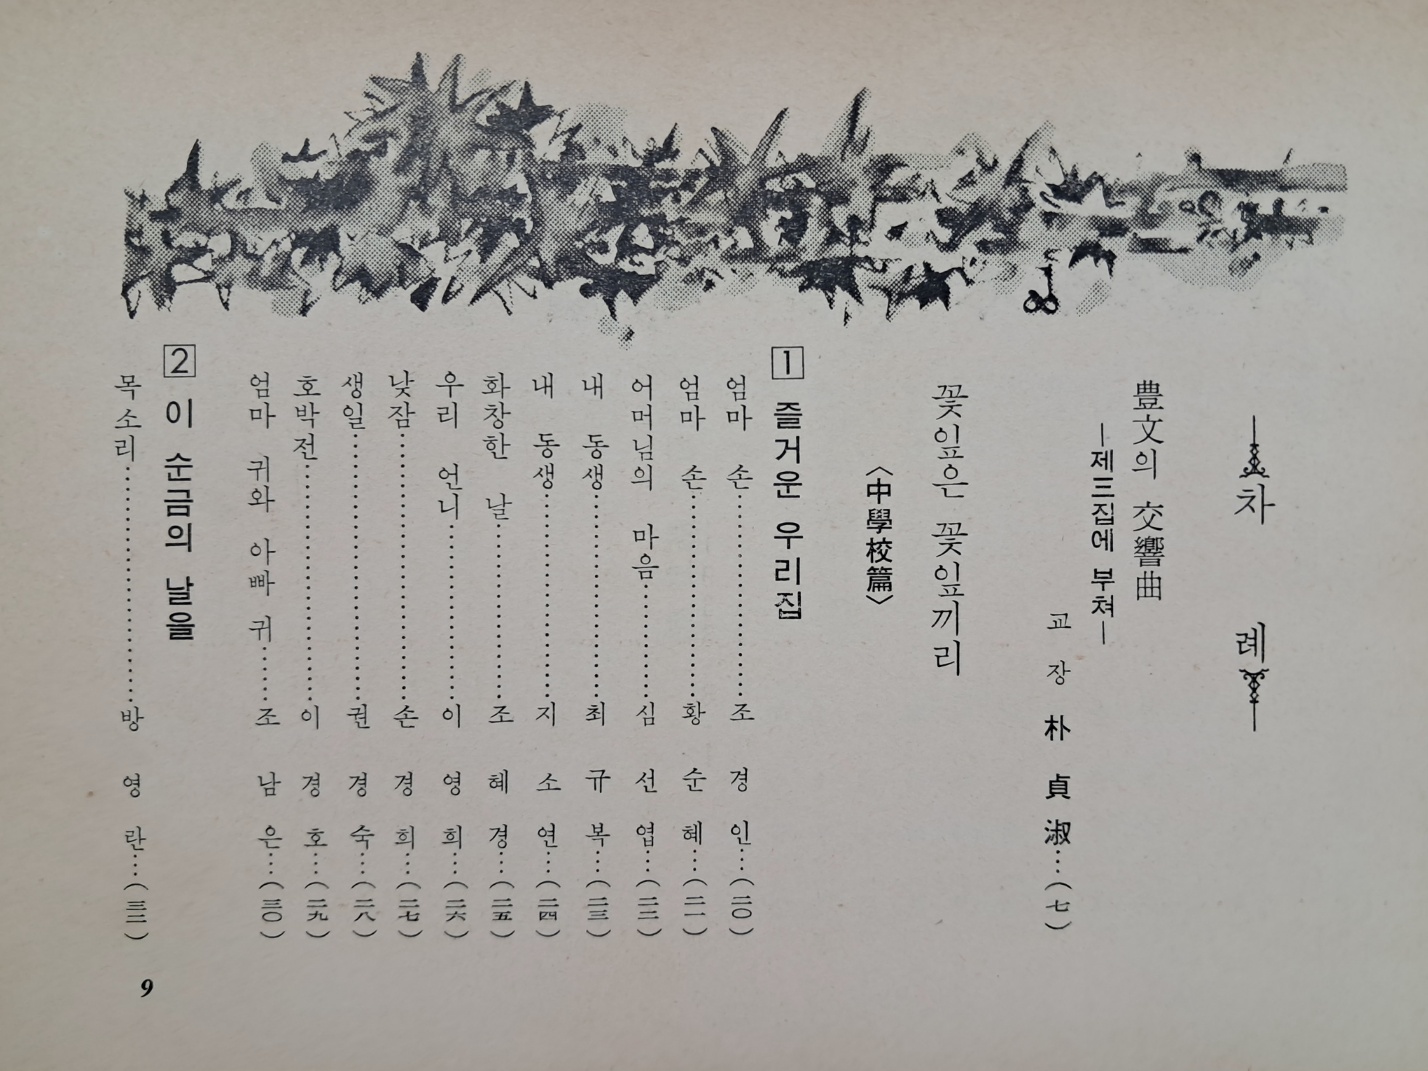 차 례
豊文의 交響曲
—제三집에 부쳐—
교 장 朴 貞 淑…(七)
꽃잎은 꽃잎끼리
〈中學校篇〉
1 즐거운 우리집
엄마 손………조 경 인…(二〇)
엄마 손………황 순 혜…(二一)
어머님의 마음………심 선 엽…(二二)
내 동생………최 규 복…(二三)
내 동생………지 소 연…(二四)
화창한 날………조 혜 경…(二五)
우리 언니………이 영 희…(二六)
낮잠………손 경 희…(二七)
생일………권 경 숙…(二八)
호박전………이 경 호…(二九)
엄마 귀와 아빠 귀……조 남 은…(三〇)
2 이 순금의 날을
목소리………방 영 란…(三二)
9